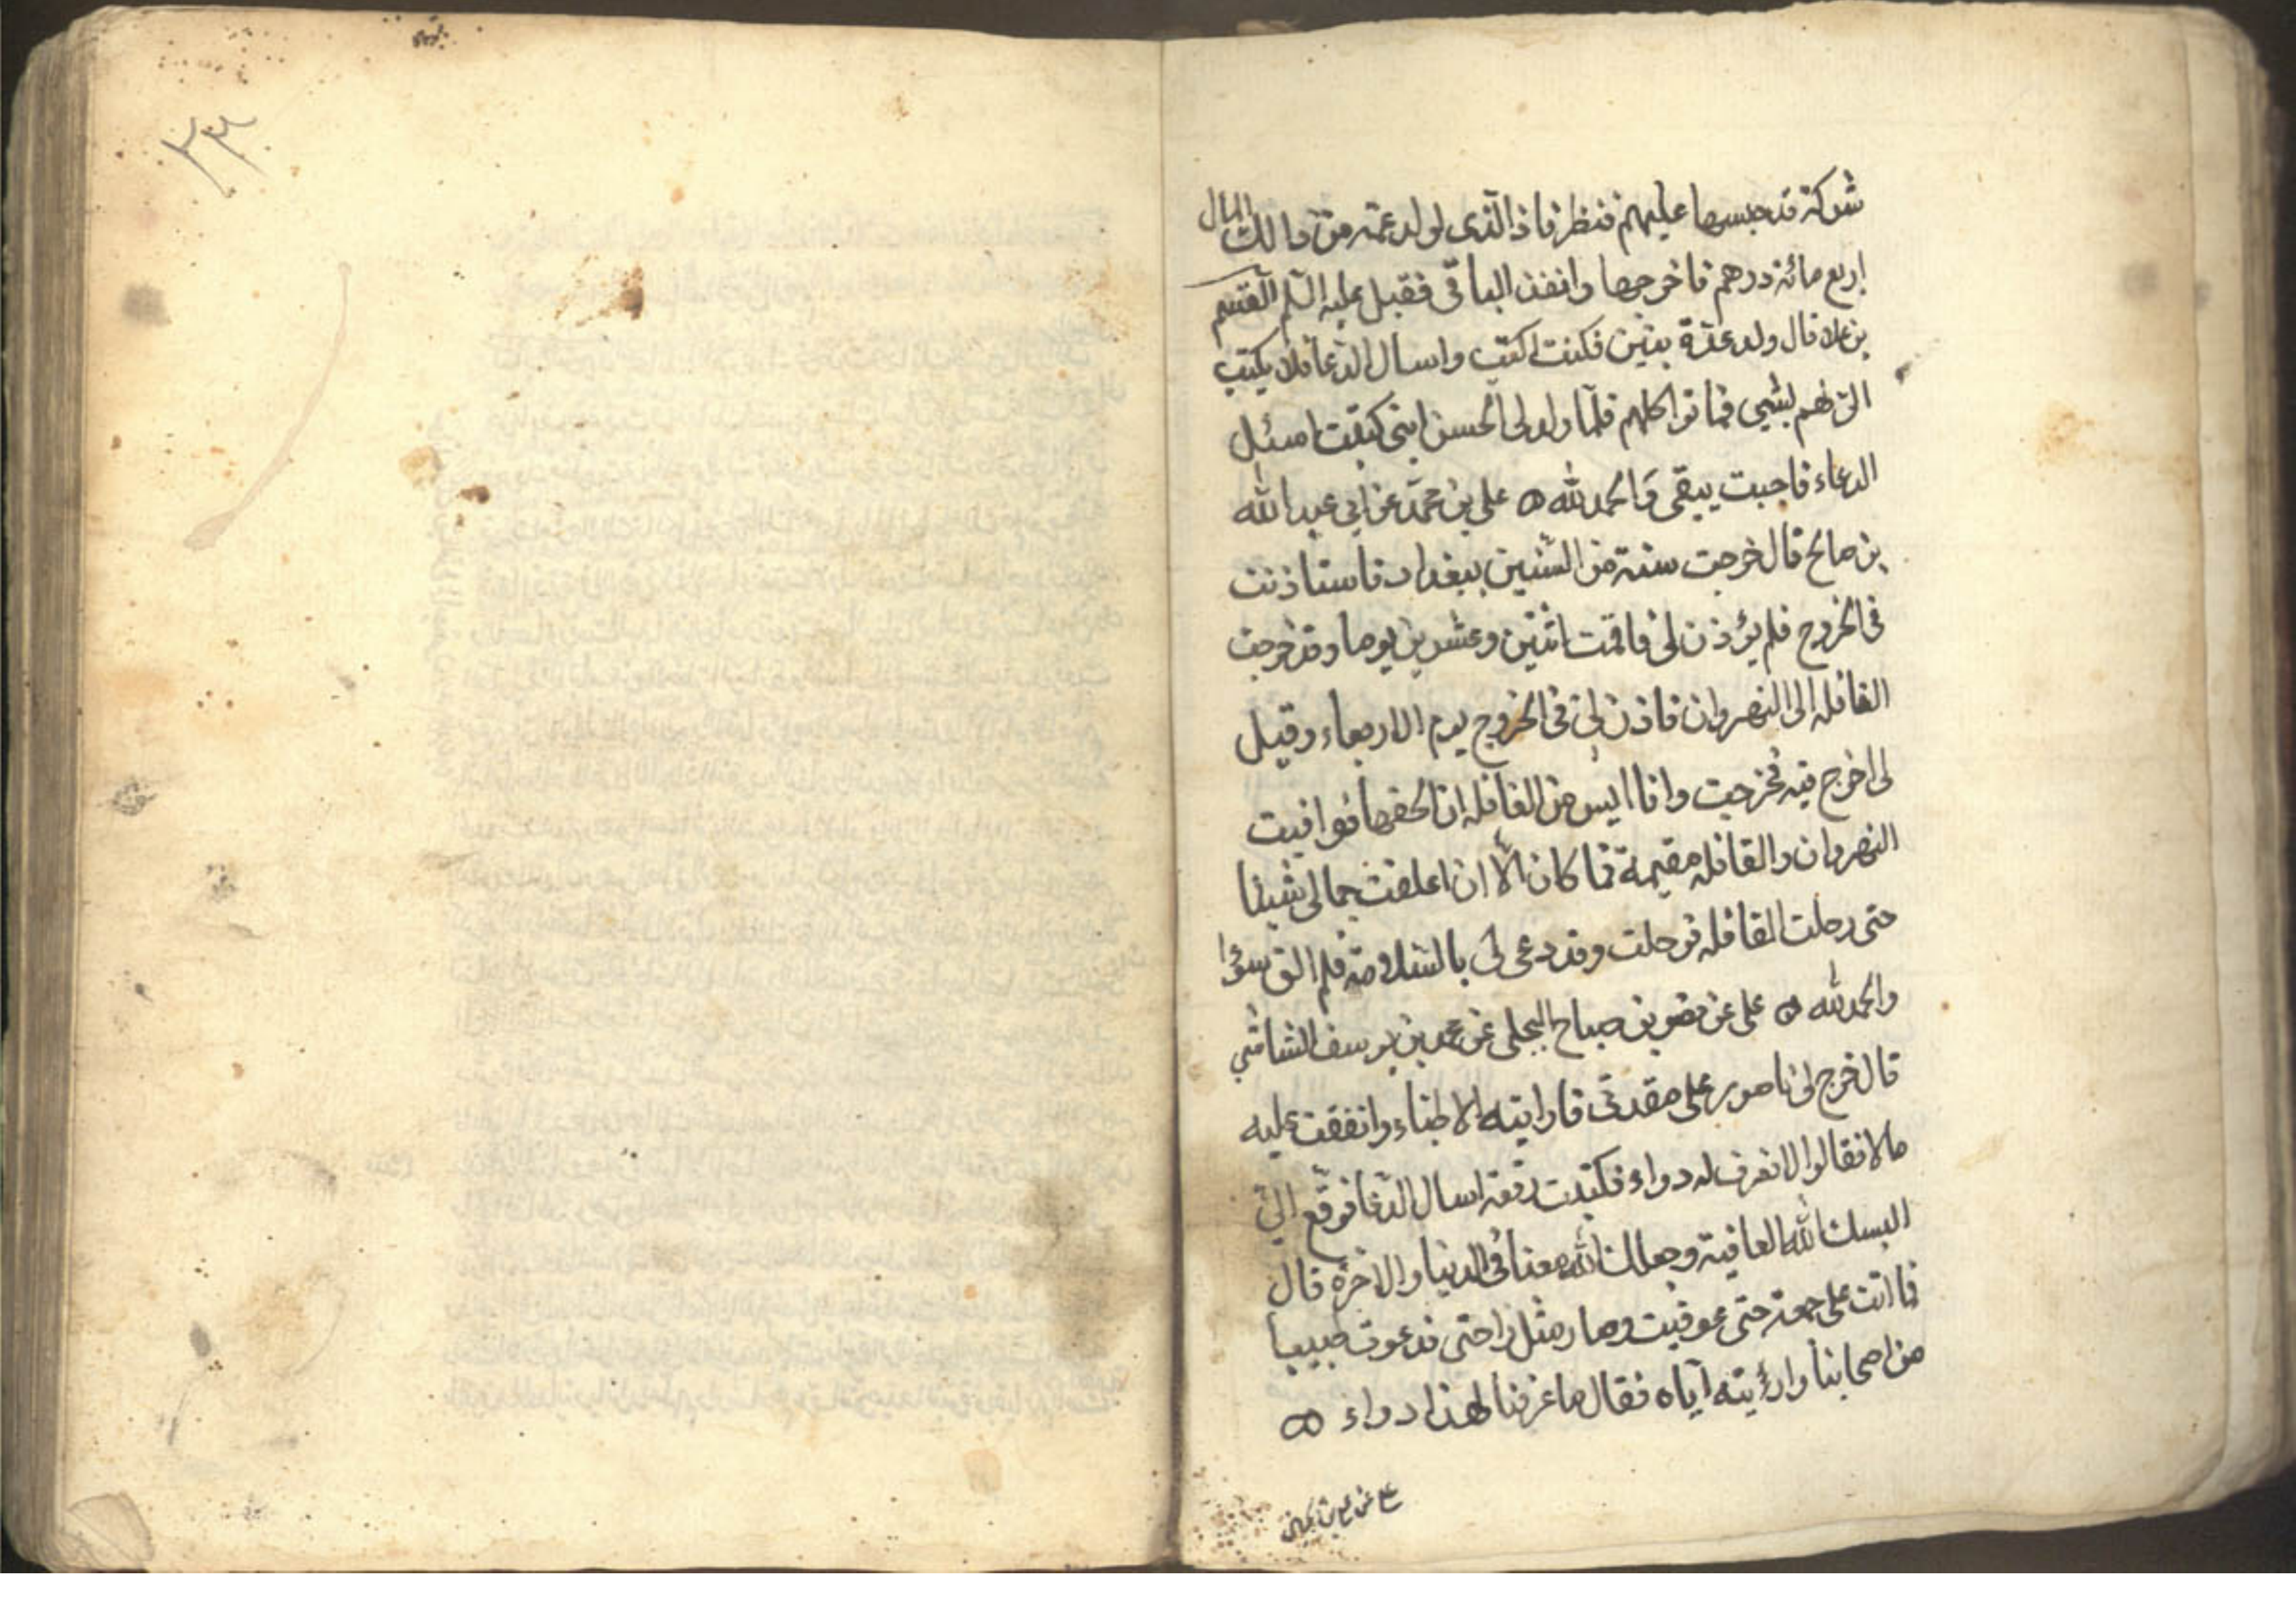 شركة قد حبسها عليهم فنظر فاذا الذى لولد عمه من ذالك المال
اربع مائة درهم فاخرجها وانفذ الباقى فقبل عليه السلم القسم
بن علا قال ولد عدة بنين فكنت اكتب واسال الدعا فلا يكتب
الى لهم بشيى فماتوا كلهم فلما ولد لى الحسن ابنى كتبت اسئل
الدعاء فاجبت يبقى والحمد لله ه على بن محمد عن ابى عبد الله
بن صالح قال خرجت سنة من السنين ببغداد فاستاذنت
فى الخروج فلم يؤذن لى فاقمت اثنين وعشرين يوما وقد خرجت
القافله الى النهروان فاذن لى فى الخروج يوم الاربعاء وقيل
لى اخرج فيه فخرجت وانا ايس من القافله ان الحقها فوافيت
النهروان والقافله مقيمة فما كان الا ان اعلفت جمالى شيئا
حتى رحلت القافله فرحلت وقد دعى لى بالسلامة فلم الق سؤا
والحمد لله ه على عن نضر بن صباح البجلى عن محمد بن يوسف الشاشى
قال خرج لى ناصور على مقعدتى فارايته الاطباء وانفقت عليه
مالا فقالوا لا نعرف له دواء فكتبت رقعة اسال الدعا فوقع الى
البسك الله العافية وجعلك الله معنا فى الدنيا والاخرة قال
فما اتت على جمعة حتى عوفيت وصار مثل راحتى فدعوت طبيبا
من اصحابنا واريته اياه فقال ما عرفنا لهذا دواء ه
على عن